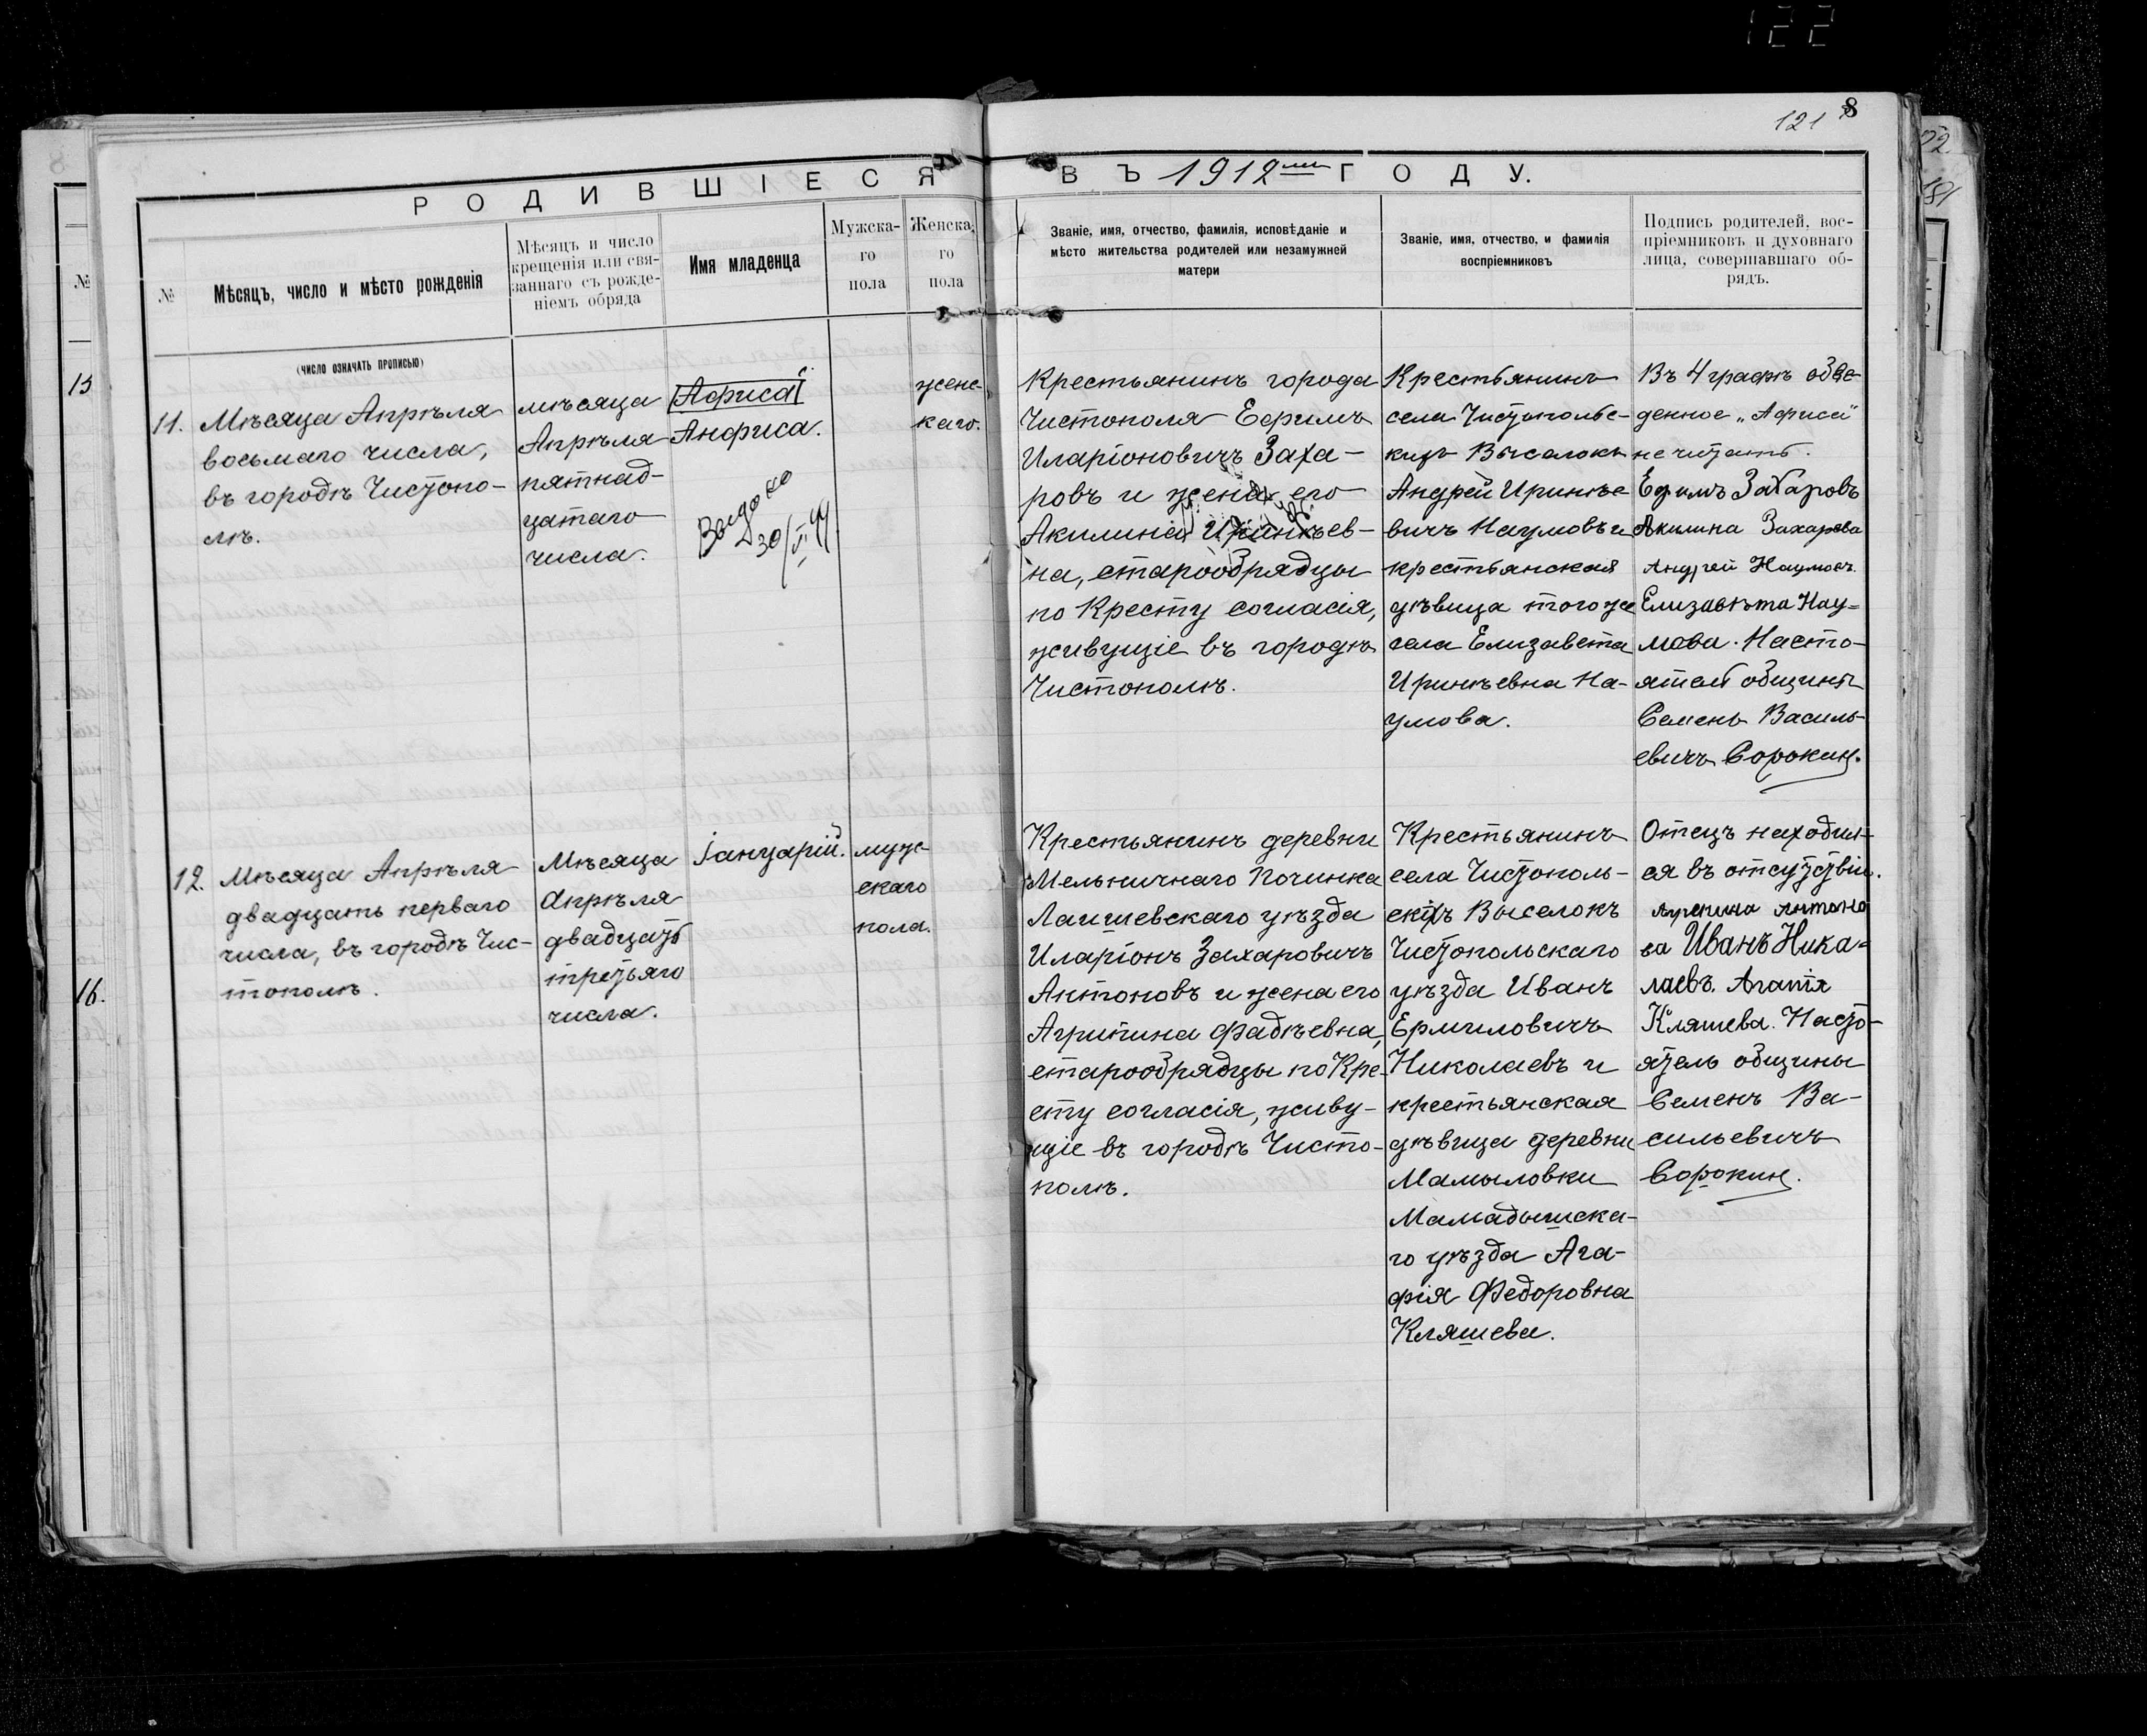 122
121
8
72
181
РОДИВШІЕСЯ ВЪ 1912 ГОДУ.
№
№
Мѣсяцъ, число и мѣсто рожденія
Мѣсяцъ и число
крещенія или свя-
заннаго съ рожде-
ніемъ обряда
Имя младенца
Мужска-
го
пола
Женска-
го
пола
Званіе, имя, отчество, фамилія, исповѣданіе и
мѣсто жительства родителей или незамужней
матери
Званіе, имя, отчество, и фамилія
воспріемниковъ
Подпись родителей, вос-
пріемниковъ и духовнаго
лица, совершавшаго об-
рядъ.
(число означать прописью)
15
16.
11.
Мѣсяца Апрѣля
восьмаго числа,
въ городѣ Чистопо-
лѣ.
мѣсяца
Апрѣля
пятнад-
цатаго
числа.
Афиса
Анфиса.
женс-
каго.
Крестьянинъ города
Чистополя Ефимъ
Иларіоновичъ Заха-
ровъ и жена его
Акилина Иринѣев-
на, старообрядцы
по Кресту согласія,
живущіе въ городѣ
Чистополѣ.
Крестьянинъ
села Чистопольс-
кихъ Выселокъ
Андрей Иринѣе-
вичъ Наумовъ и
крестьянская
дѣвица того же
села Елизавета
Иринѣевна На-
умова.
Въ 4 графѣ обве-
денное „Афиса"
не читать.
Ефимъ Захаровъ
Акилина Захарова
Андрей Наумовъ
Елизавѣта Нау-
мова. Насто-
ятель общины
Семенъ Василь-
евичъ Сорокин.
12.
Мѣсяца Апрѣля
двадцать перваго
числа, въ городѣ Чис-
тополѣ.
Мѣсяца
Апрѣля
двадцать
третьяго
числа.
Іануарій.
муж-
скаго
пола.
Крестьянинъ деревни
Мельничнаго Починка
Лаишевскаго уѣзда
Иларіонъ Захаровичъ
Антоновъ и жена его
Агрипина Фадѣевна,
старообрядцы по Кре-
сту согласія, живу-
щіе въ городѣ Чисто-
полѣ.
Крестьянинъ
села Чистополь-
скихъ Выселокъ
Чистопольскаго
уѣзда Иванъ
Ермиловичъ
Николаевъ и
крестьянская
дѣвица деревни
Мамыловки
Мамадышска-
го уѣзда Ага-
фія Федоровна
Кляшева.
Отецъ находил-
ся въ отсутствіи.
Антоно
ва Иванъ Ника-
лаевъ. Агапія
Кляшева. Насто-
ятель общины
Семенъ Ва-
сильевичъ
Сорокин.